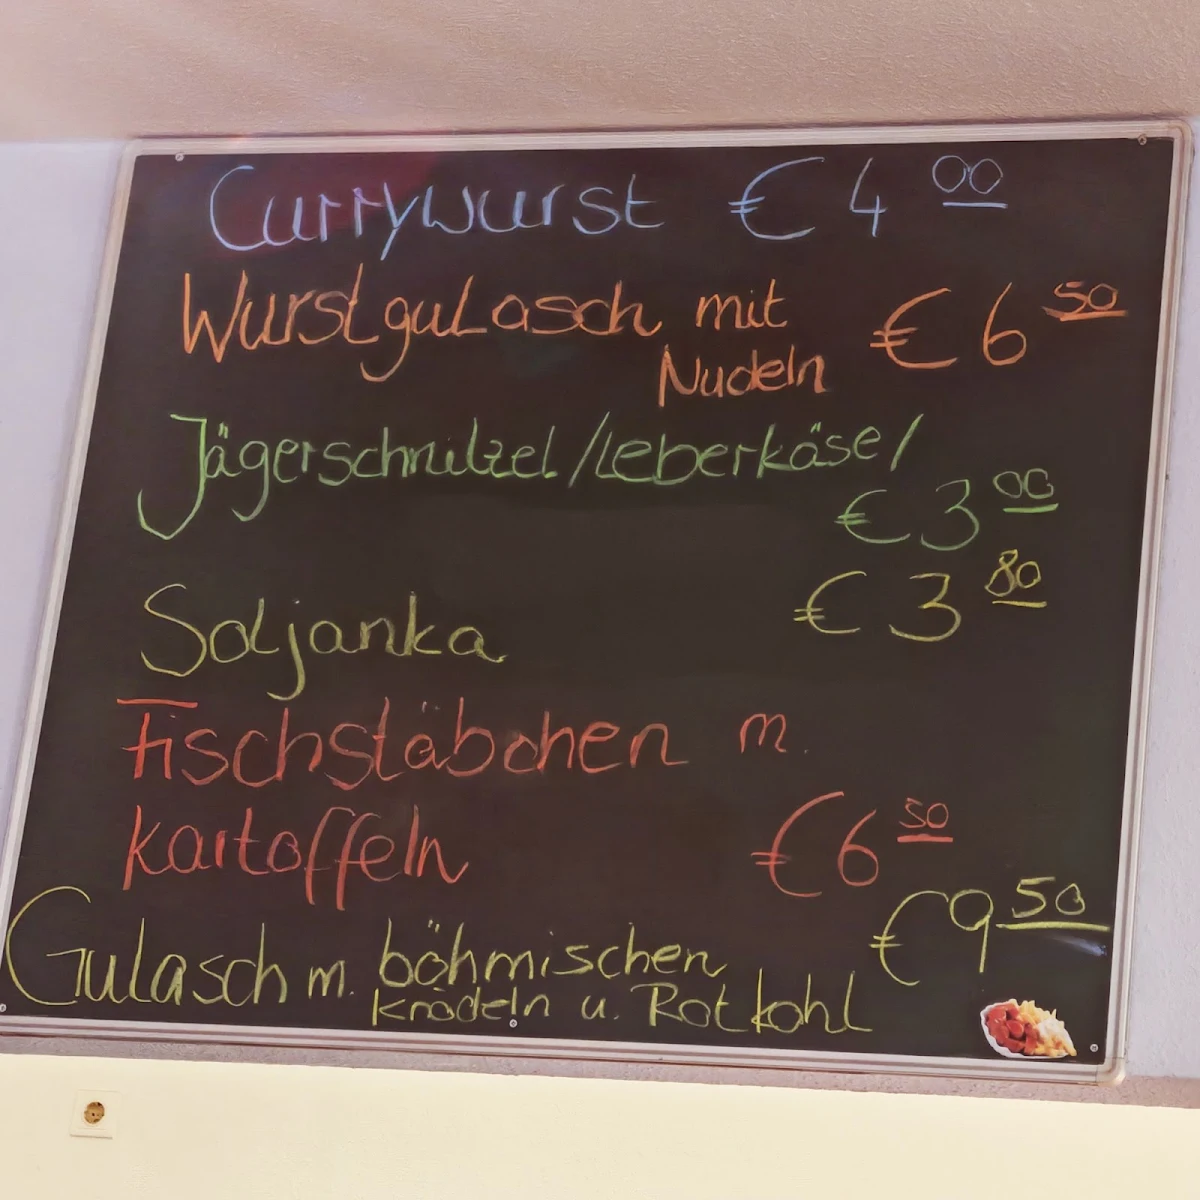 Currywurst € 4 00
Wurstgulasch mit € 6 50
Nudeln
Jägerschnitzel/Leberkäse/
€ 3 00
Soljanka € 3 80
Fischstäbchen m.
Kartoffeln € 6 50
Gulasch m. böhmischen € 9 50
Knödeln u. Rotkohl